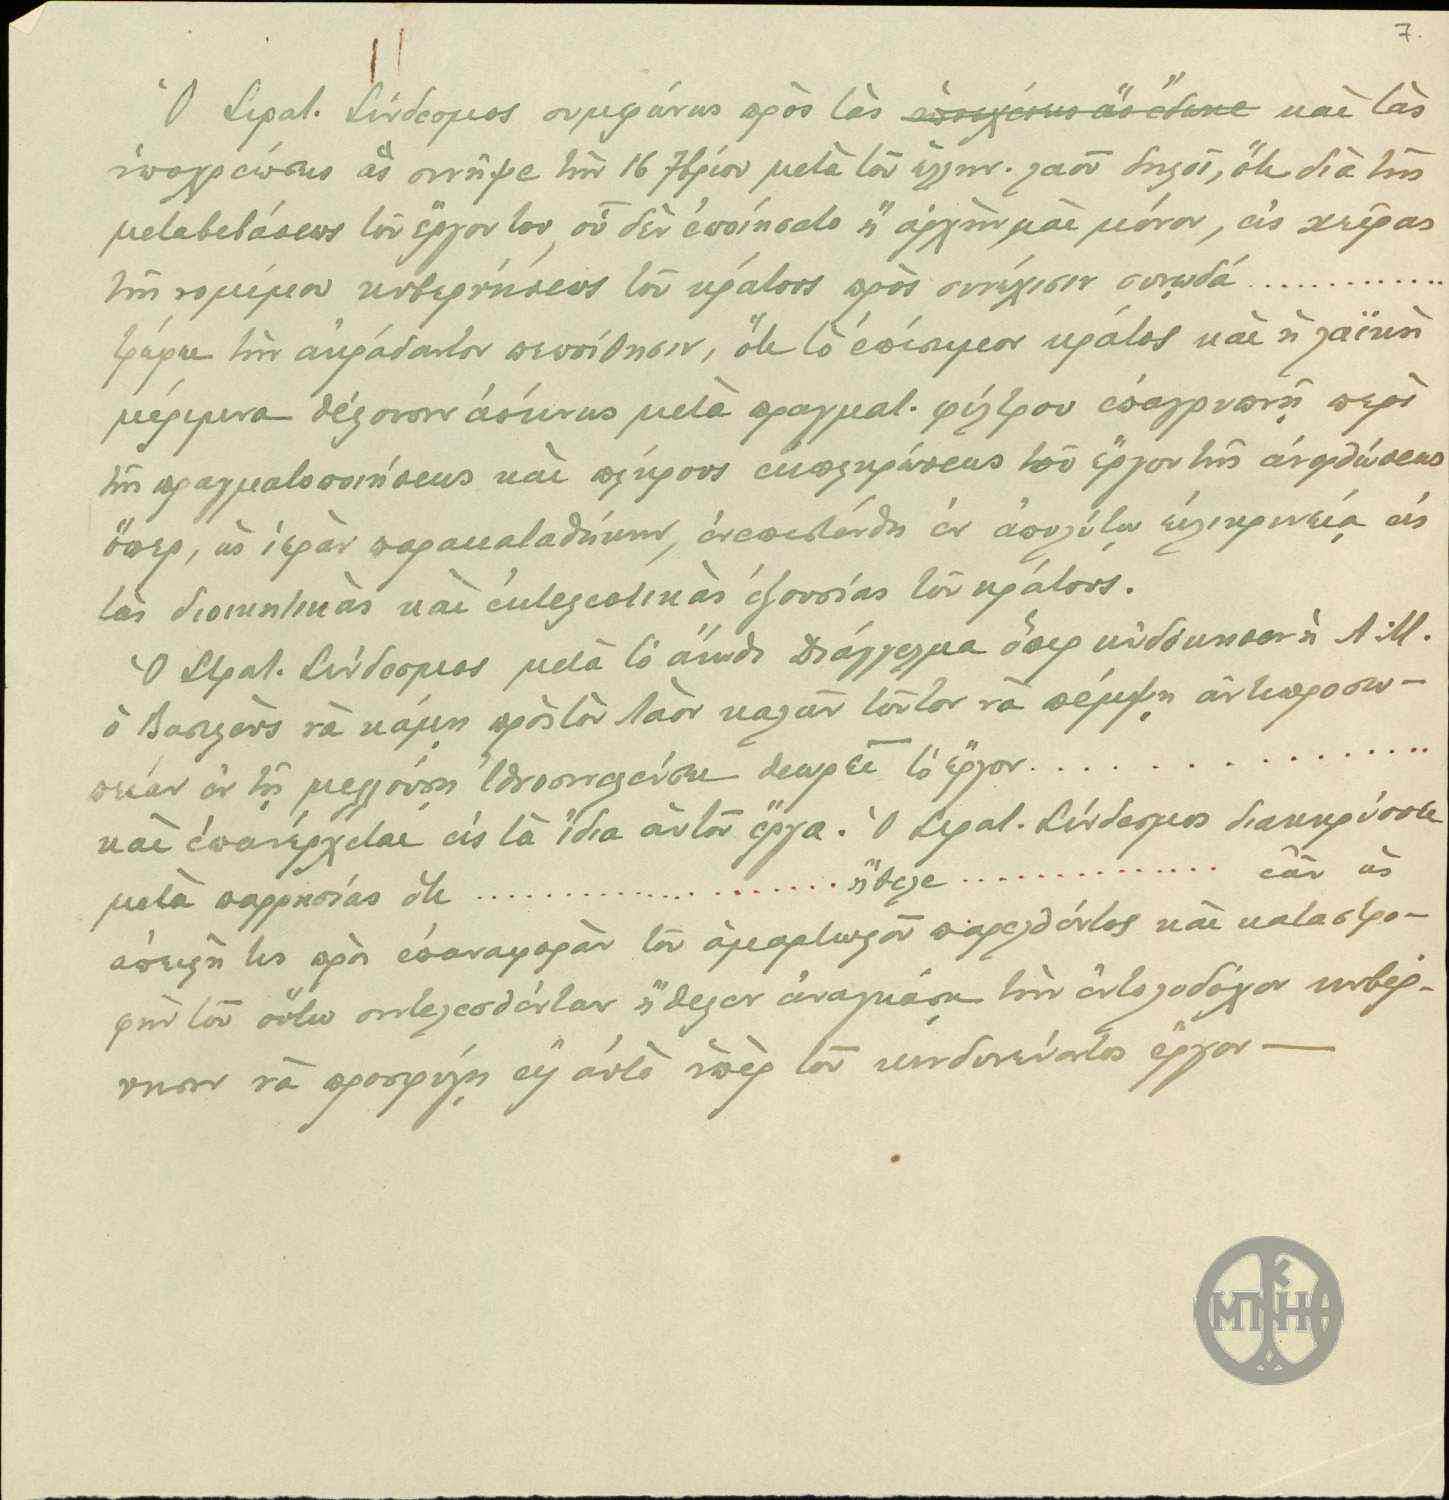 7.
Ὁ Στρατ. Σύνδεσμος συμφώνως πρὸς τὰς ὑποσχέσεις ἃς ἔδωκε καὶ τὰς
ὑποχρεώσεις ἃς συνῆψε τὴν 16 7βρίου μετὰ τοῦ ἑλλην. λαοῦ δηλοῖ, ὅτι διὰ τῆς
μεταβιβάσεως τοῦ ἔργου του, οὗ δὲν ἐποιήσατο ἢ ἀρχὴν καὶ μόνον, εἰς χεῖρας
τῆς νομίμου κυβερνήσεως τοῦ κράτους πρὸς συνέχισιν ............
τρέφει τὴν ἀκράδαντον πεποίθησιν, ὅτι τὸ ἐπίσημον κράτος καὶ ἡ λαϊκὴ
μέριμνα θέλουσιν ἀόκνως μετὰ πραγματ. φίλτρου ἐπαγρυπνῆ περὶ
τῆς πραγματοποιήσεως καὶ πλήρους ἐκπληρώσεως τοῦ ἔργου τῆς ἀνορθώσεως
ὅπερ, ὡς ἱερὰν παρακαταθήκην, ἐνεπιστεύθη ἐν ἀπολύτῳ εἰλικρινείᾳ εἰς
τὰς διοικητικὰς καὶ ἐκτελεστικὰς ἐξουσίας τοῦ κράτους.
Ὁ Στρατ. Σύνδεσμος μετὰ τὸ Διάγγελμα ὅπερ ηὐδόκησεν ἡ Α.Μ.
ὁ Βασιλεὺς νὰ κάμῃ πρὸς τὸν Λαὸν καλῶν τοῦτον νὰ πέμψῃ ἀντιπροσω-
πείαν ἐν τῇ μελλούσῃ Ἐθνοσυνελεύσει θεωρεῖ τὸ ἔργον ............
καὶ ἐπανέρχεται εἰς τὰ ἴδια αὐτοῦ ἔργα. Ὁ Στρατ. Σύνδεσμος διακηρύσσει
μετὰ παρρησίας ὅτι ............ ἤθελε ............ ἐὰν ὡς
ἀπειλή τις πρὸς ἐπαναφορὰν τοῦ ἁμαρτωλοῦ παρελθόντος καὶ καταστρο-
φὴν τῶν οὕτω συντελεσθέντων ἤθελεν ἀναγκάσῃ τὴν ἐντολοδόχον κυβέρ-
νησιν νὰ προσφύγῃ εἰς αὐτὸ ὑπὲρ τοῦ κινδυνεύοντος ἔργου —
ΜΠΚΗ